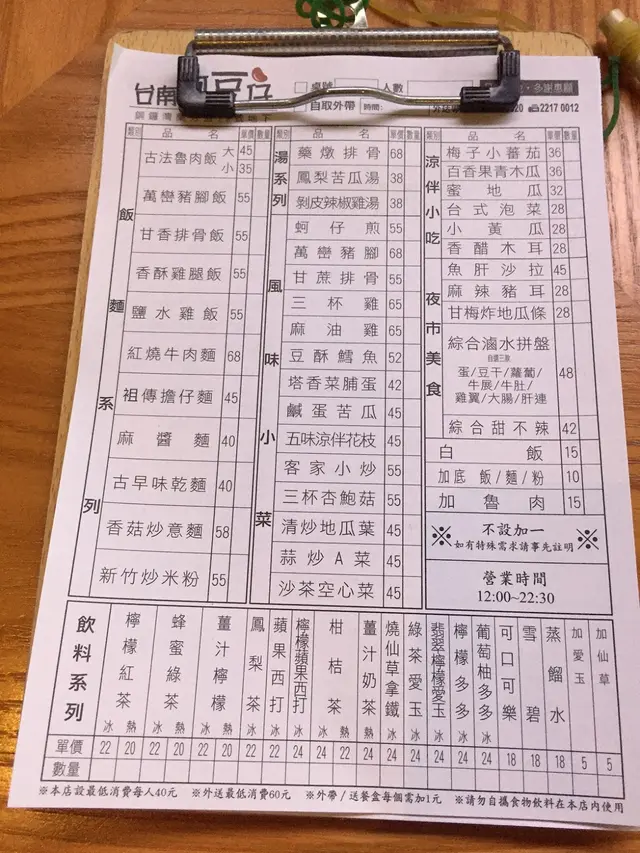 台南 豆仔
桌號 人數 多謝惠顧
自取外帶 時間: 20 ☎2217 0012
類別 品名 單價 數量
飯麵系列
古法魯肉飯 大 45
小 35
萬巒豬腳飯 55
甘香排骨飯 55
香酥雞腿飯 55
鹽水雞飯 55
紅燒牛肉麵 68
祖傳擔仔麵 45
麻醬麵 40
古早味乾麵 40
香菇炒意麵 58
新竹炒米粉 55
類別 品名 單價 數量
湯系列
藥燉排骨 68
鳳梨苦瓜湯 38
剝皮辣椒雞湯 38
風味小菜
蚵仔煎 55
萬巒豬腳 68
甘蔗排骨 55
三杯雞 65
麻油雞 65
豆酥鱈魚 52
塔香菜脯蛋 42
鹹蛋苦瓜 45
五味涼伴花枝 45
客家小炒 55
三杯杏鮑菇 55
清炒地瓜葉 45
蒜炒A菜 45
沙茶空心菜 45
類別 品名 單價 數量
涼伴小吃
梅子小蕃茄 36
百香果青木瓜 36
蜜地瓜 32
台式泡菜 28
小黃瓜 28
香醋木耳 28
夜市美食
魚肝沙拉 45
麻辣豬耳 28
甘梅炸地瓜條 28
綜合滷水拼盤 48
自價三款
蛋/豆干/蘿蔔/
牛展/牛肚/
雞翼/大腸/肝連
綜合甜不辣 42
白飯 15
加底 飯/麵/粉 10
加魯肉 15
※ 不設加一 ※
如有特殊需求請事先註明
營業時間
12:00~22:30
飲料系列
檸檬紅茶 冰 熱
蜂蜜綠茶 冰 熱
薑汁檸檬 冰 熱
鳳梨茶 冰
蘋果西打 冰
檸檬蘋果西打 冰
柑桔茶 冰 熱
薑汁奶茶 熱
燒仙草拿鐵 冰
綠茶愛玉 冰
翡翠檸檬愛玉 冰
檸檬多多 冰
葡萄柚多多 冰
可口可樂
雪碧
蒸餾水
加愛玉
加仙草
單價 22 20 22 20 22 20 22 22 24 24 22 24 24 24 24 24 24 18 18 18 5 5
數量
※本店設最低消費每人40元 ※外送最低消費60元 ※外帶/送餐盒每個需加1元 ※請勿自攜食物飲料在本店內使用